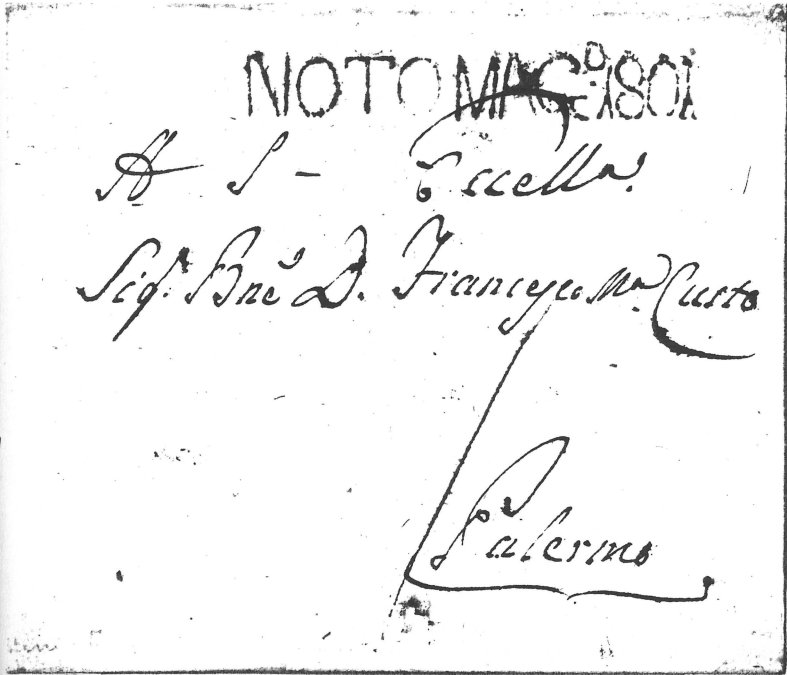 NOTO MAGº. 1801
A S - Eccellª.
Sigʳ. Bnē D. Francesco Mª. Custo
Palermo